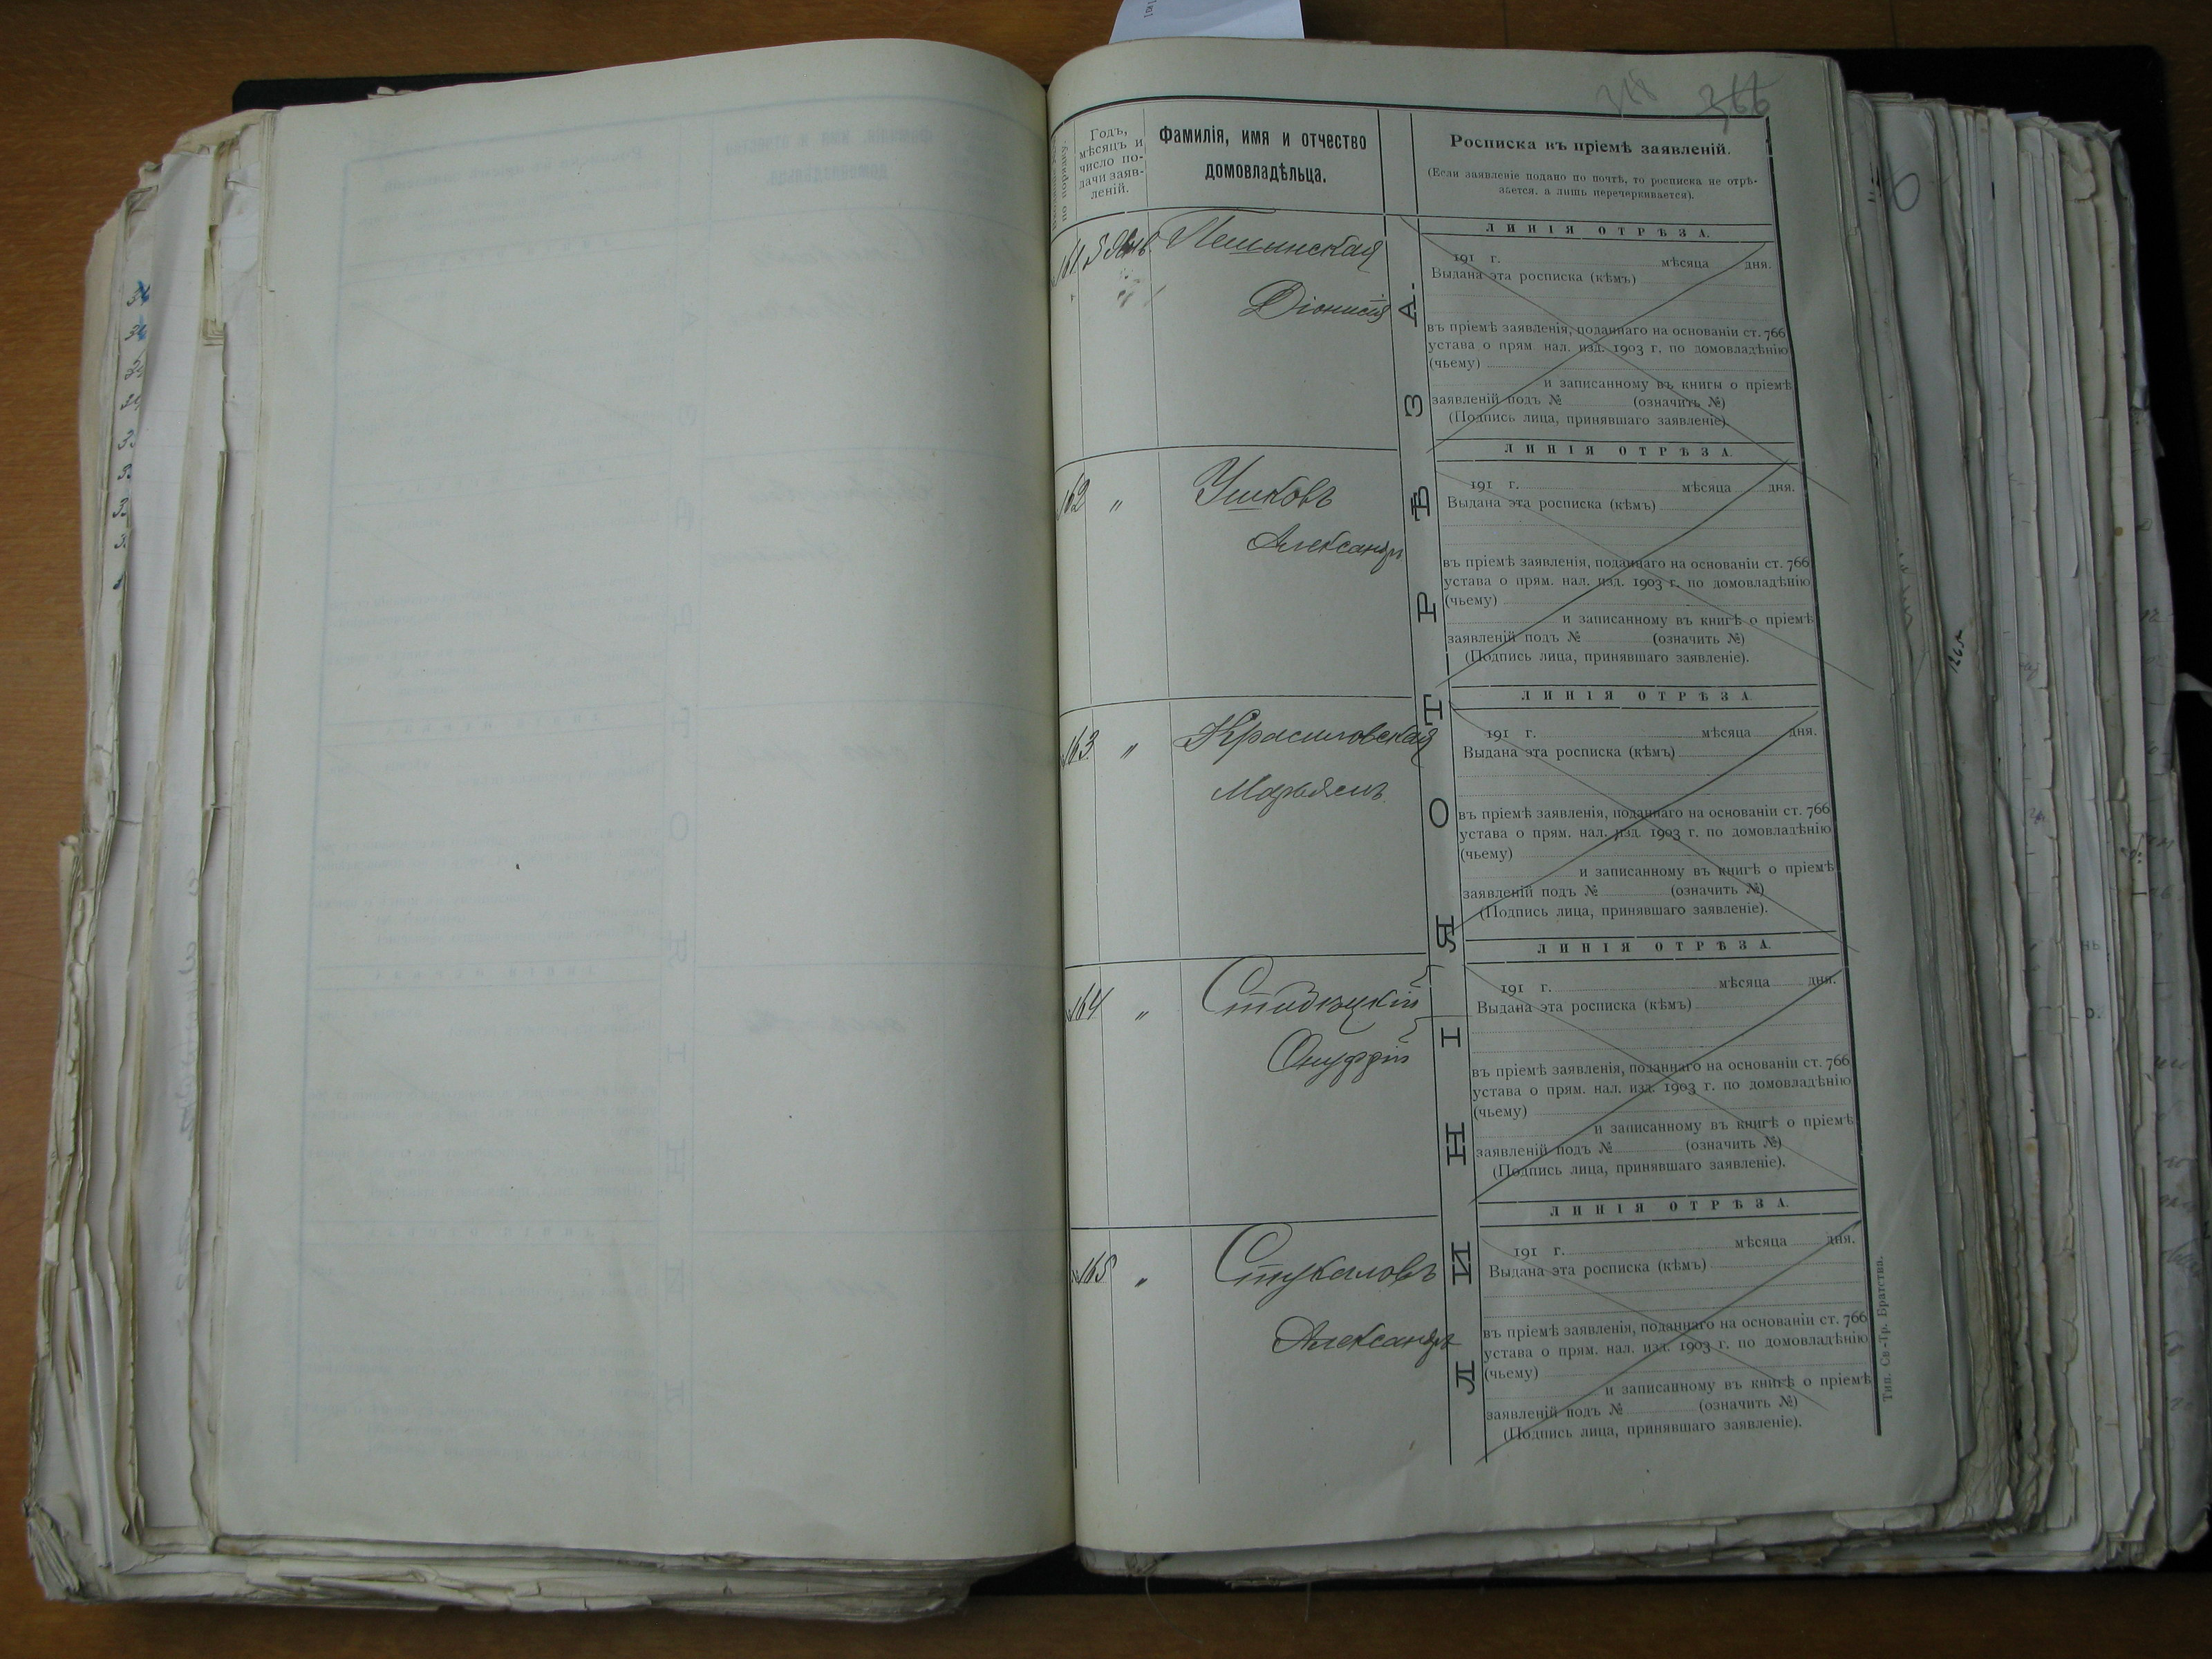 318 366
по порядку.
Годъ,
мѣсяцъ и
число по-
дачи заяв-
леній.
Фамилія, имя и отчество
домовладѣльца.
Росписка въ пріемѣ заявленій.
(Если заявленіе подано по почтѣ, то росписка не отрѣ-
зается, а лишь перечеркивается).
ЛИНІЯ ОТРѢЗА.
161 5 Янв. Пешинская
Діонисія
ЛИНІЯ ОТРѢЗА.
191 г. мѣсяца дня.
Выдана эта росписка (кѣмъ)
въ пріемѣ заявленія, поданнаго на основаніи ст. 766
устава о прям. нал. изд. 1903 г. по домовладѣнію
(чьему)
и записанному въ книгы о пріемѣ
заявленій подъ № (означить №)
(Подпись лица, принявшаго заявленіе).
162 " Ушковъ
Александръ
ЛИНІЯ ОТРѢЗА.
191 г. мѣсяца дня.
Выдана эта росписка (кѣмъ)
въ пріемѣ заявленія, поданнаго на основаніи ст. 766
устава о прям. нал. изд. 1903 г. по домовладѣнію
(чьему)
и записанному въ книгѣ о пріемѣ
заявленій подъ № (означить №)
(Подпись лица, принявшаго заявленіе).
163 " Красиловская
Марьясъ
ЛИНІЯ ОТРѢЗА.
191 г. мѣсяца дня.
Выдана эта росписка (кѣмъ)
въ пріемѣ заявленія, поданнаго на основаніи ст. 766
устава о прям. нал. изд. 1903 г. по домовладѣнію
(чьему)
и записанному въ книгѣ о пріемѣ
заявленій подъ № (означить №)
(Подпись лица, принявшаго заявленіе).
164 "
Онуфрій
ЛИНІЯ ОТРѢЗА.
191 г. мѣсяца дня.
Выдана эта росписка (кѣмъ)
въ пріемѣ заявленія, поданнаго на основаніи ст. 766
устава о прям. нал. изд. 1903 г. по домовладѣнію
(чьему)
и записанному въ книгѣ о пріемѣ
заявленій подъ № (означить №)
(Подпись лица, принявшаго заявленіе).
165 " Стукаловъ
Александръ
ЛИНІЯ ОТРѢЗА.
191 г. мѣсяца дня.
Выдана эта росписка (кѣмъ)
въ пріемѣ заявленія, поданнаго на основаніи ст. 766
устава о прям. нал. изд. 1903 г. по домовладѣнію
(чьему)
и записанному въ книгѣ о пріемѣ
заявленій подъ № (означить №)
(Подпись лица, принявшаго заявленіе).
Тип. Св-Тр. Братства.